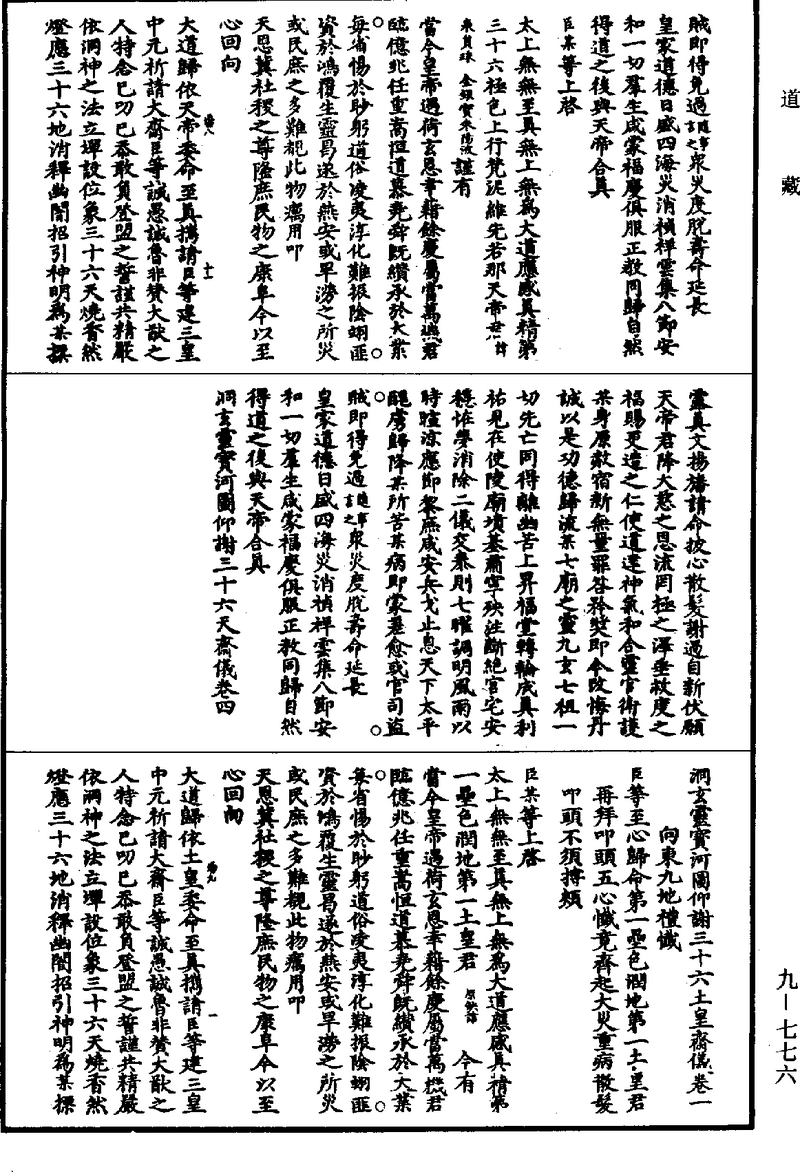 道藏
賊即得免過隨事言之眾災度脫壽命延長
皇家道德日盛四海災消禎祥雲集八節安
和一切羣生咸蒙福慶俱服正教同歸自然
得道之後與天帝合真
臣某等上啓
太上無無至真無上無為大道應感真精第
三十六極色上行梵泥維先若那天帝君
謹有
當今皇帝遇荷玄恩幸藉餘慶屬當萬機君
臨億兆任重嵩恒道慕堯舜既纘承於大業
每省惕於眇躬道俗凌夷淳化難振陰翊匪
資於鴻覆生靈曷遂於燕安或旱澇之所災
或民庶之多難覩此物癘用叩
天恩冀社稷之尊隆庶民物之康阜今以至
心回向
大道歸依天帝委命至真攜請臣等建三皇
中元祈請大齋臣等誠愚誠魯非贊大猷之
人特念已叨已忝敢負登盟之誓謹共精嚴
依洞神之法立壇設位象三十六天燒香然
燈應三十六地消釋幽闇招引神明為某探
靈真文揚旛請命披心散髮謝過自新伏願
天帝君降大慈之恩流罔極之澤垂救度之
福賜更造之仁使道達神氣和合靈官衛護
某身原赦宿新無量罪咎矜獎即今改悔丹
誠以是功德歸流某七廟之靈九玄七祖一
切先亡同得離幽苦上昇福堂轉輪成真利
祐見在使陵廟墳墓肅寧殃注斷絕官宅安
穩怪夢消除二儀交泰則七曜調明風雨以
時暄涼應節黎庶咸安兵戈止息天下太平
醜虜歸降某所苦某病即蒙差愈或官司盜
賊即得免過隨事言之眾災度脫壽命延長
皇家道德日盛四海災消禎祥雲集八節安
和一切羣生咸蒙福慶俱服正教同歸自然
得道之後與天帝合真
洞玄靈寶河圖仰謝三十六天齋儀卷四
洞玄靈寶河圖仰謝三十六土皇齋儀卷一
向東九地禮懺
臣等至心歸命第一壘色潤地第一土皇君
再拜叩頭五心懺竟齊起大災重病散髮
叩頭不須搏頰
臣某等上啓
太上無無至真無上無為大道應感真精第
一壘色潤地第一土皇君 今有
當今皇帝遇荷玄恩幸藉餘慶屬當萬機君
臨億兆任重嵩恒道慕堯舜既纘承於大業
每省惕於眇躬道俗凌夷淳化難振陰翊匪
資於鴻覆生靈曷遂於燕安或旱澇之所災
或民庶之多難覩此物癘用叩
天恩冀社稷之尊隆庶民物之康阜今以至
心回向
大道歸依土皇委命至真攜請臣等建三皇
中元祈請大齋臣等誠愚誠魯非贊大猷之
人特念已叨已忝敢負登盟之誓謹共精嚴
依洞神之法立壇設位象三十六天燒香然
燈應三十六地消釋幽闇招引神明為某探
九—七七六